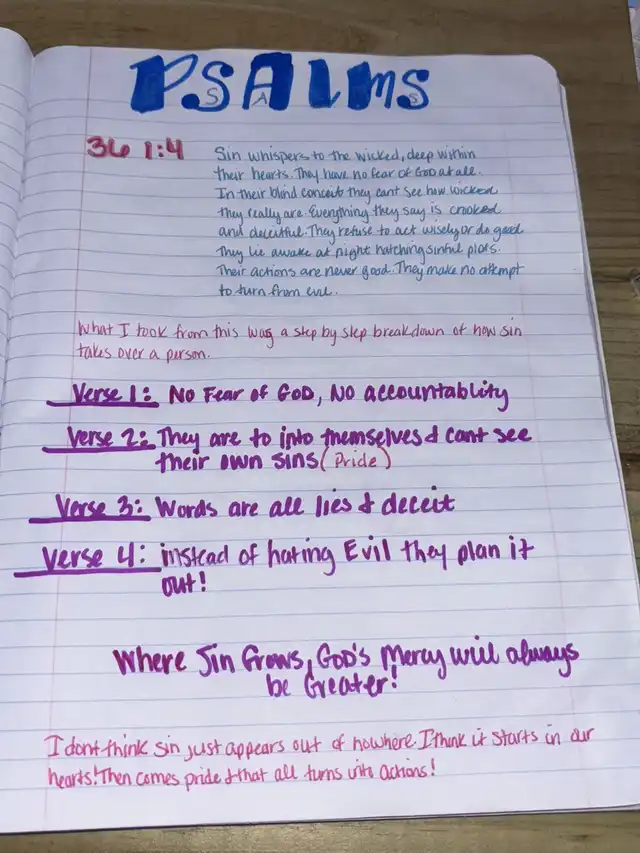 PSALMS
36 1:4
Sin whispers to the wicked, deep within
their hearts. They have no fear of GOD at all.
In their blind conceit they cant see how wicked
they really are. Everything they say is crooked
and deceitful. They refuse to act wisely or do good
They lie awake at night hatching sinful plots.
Their actions are never good. They make no attempt
to turn from evil.
What I took from this was a step by step breakdown of how sin
takes over a person.
Verse 1: No Fear of GOD, No accountablity
Verse 2: They are to into themselves & cant see
their own sins (Pride)
Verse 3: Words are all lies & deceit
Verse 4: instead of hating Evil they plan it
out!
Where Sin Grows, GOD's Mercy will always
be Greater!
I dont think sin just appears out of nowhere. I think it starts in our
hearts! Then comes pride & that all turns into actions!